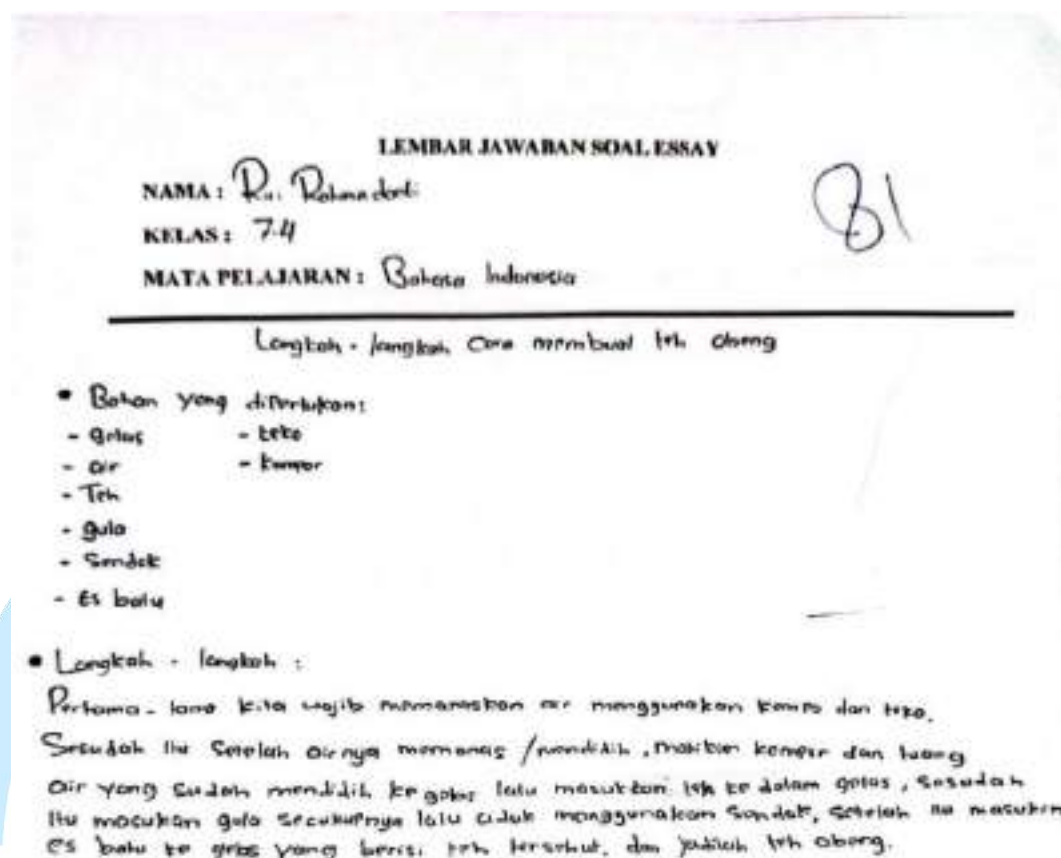 LEMBAR JAWABAN SOAL ESSAY
NAMA : Rahmadani
81
KELAS : 7.4
MATA PELAJARAN : Bahasa Indonesia
Langkah - langkah Cara membuat teh obeng
• Bahan yang diperlukan:
- gelas - teko
- air - kompor
- Teh
- gula
- Sendok
- Es batu
• Langkah - langkah :
Pertama - tama kita wajib memanaskan air menggunakan dan teko.
Sesudah itu Setelah airnya memanas / mendidih, matikan kompor dan tuang
air yang sudah mendidih ke gelas lalu masukkan teh ke dalam gelas, Sesudah
itu masukan gula secukupnya lalu aduk menggunakan Sendok, setelah itu masukin
es batu ke gelas yang berisi teh tersebut, dan jadilah teh obeng.